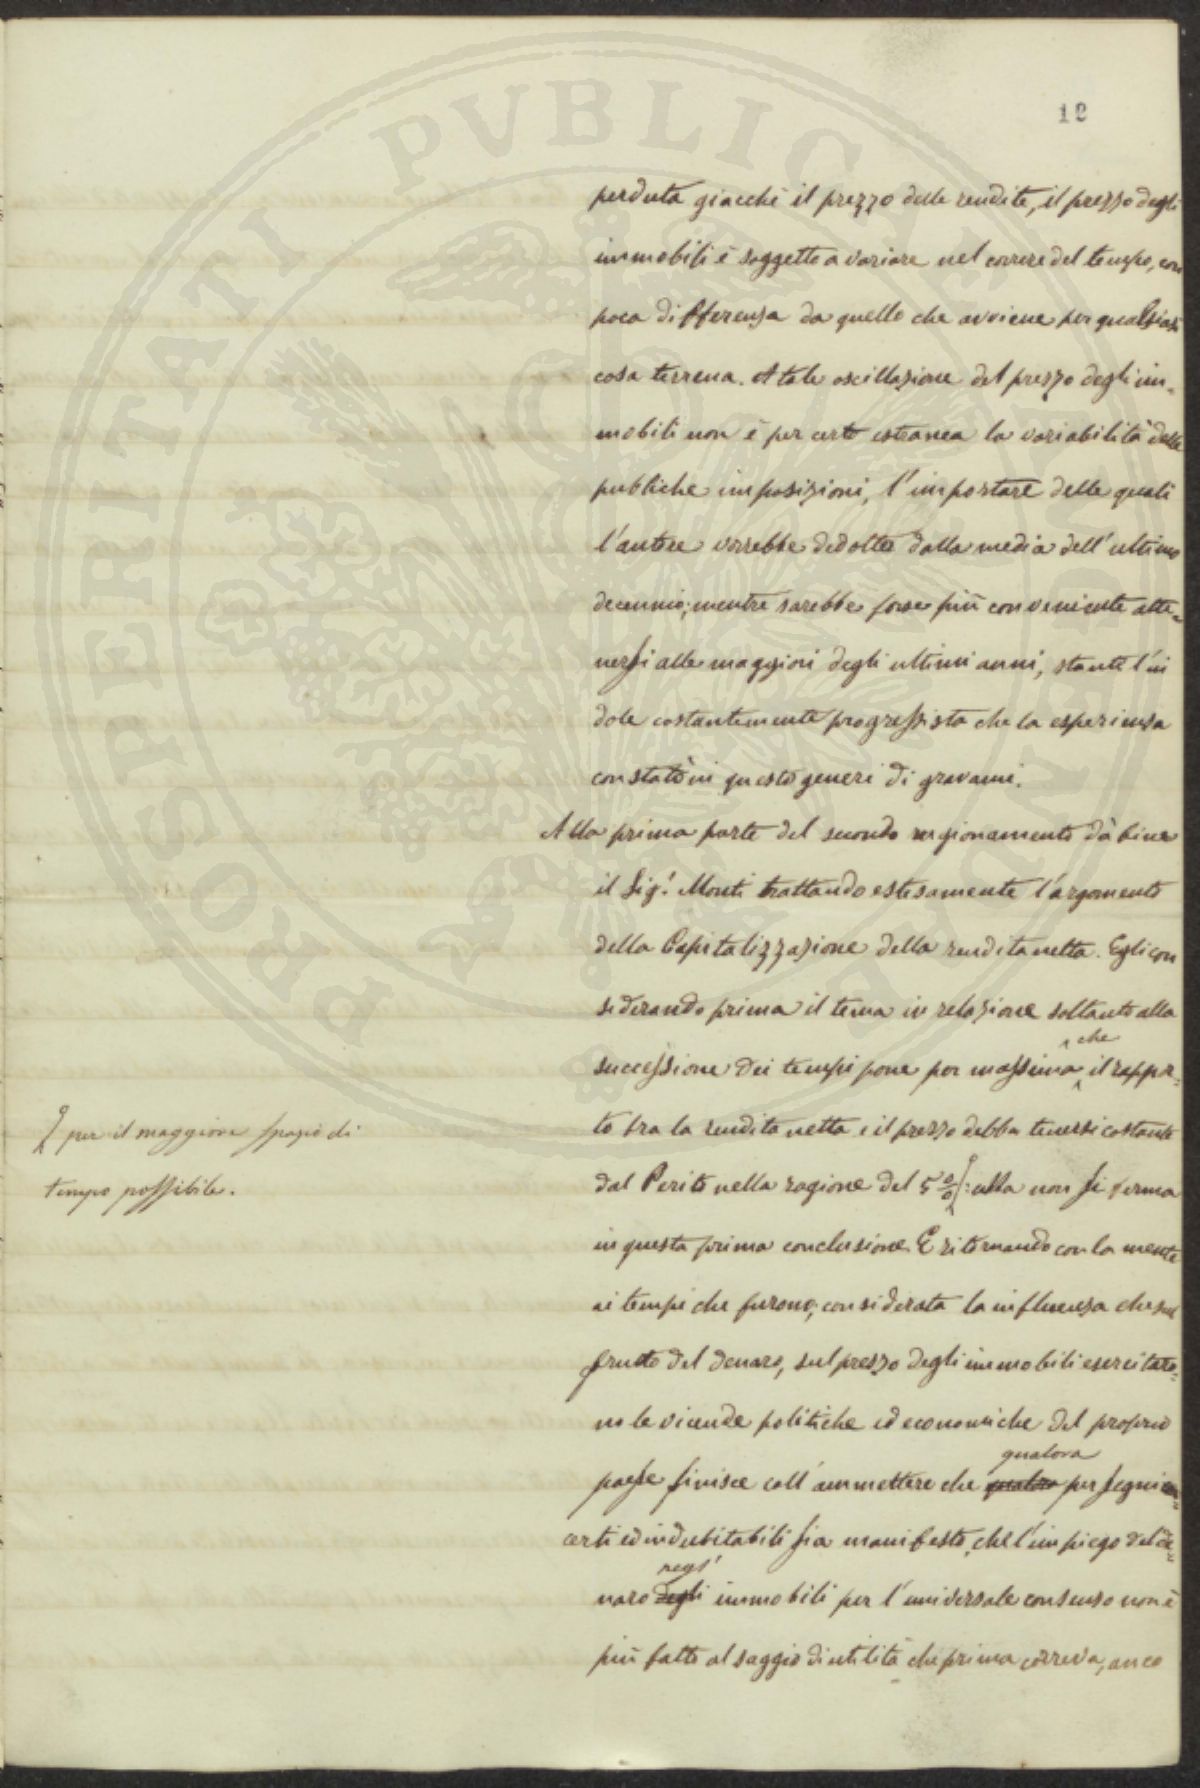 PROSPERITATI PUBLICAE AUGENDAE
12
perduta giacchè il prezzo delle rendite, il prezzo degli
immobili è soggetto a variare nel correre del tempo, con
poca differenza da quello che avviene per qualsiasi
cosa terrena. A tale oscillazione del prezzo degli im-
mobili non è per certo estranea la variabilità delle
publiche imposizioni, l'importare delle quali
l'autore vorrebbe dedotto dalla media dell'ultimo
decennio; mentre sarebbe forse più conveniente atte-
nersi alle maggiori degli ultimi anni, stante l'in
dole costantemente progressista che la esperienza
constatò in questo generi di gravami.
Alla prima parte del secondo ragionamento dà bene
il Sig.r Monti trattando estesamente l'argomento
della Capitalizzazione della rendita netta. Egli con
siderando prima il tema in relazione soltanto alla
che
successione dei tempi pone per massima il rappor-
to tra la rendita netta e il prezzo debba tenersi costante
per il maggiore spazio di
tempo possibile.
dal Perito nella ragione del 5 %: Ma non si ferma
in questa prima conclusione. E ritornando con la mente
ai tempi che furono, considerata la influenza che sul
frutto del denaro, sul prezzo degli immobili esercitaro-
no le vicende politiche ed economiche del proprio
qualora
paese finisce coll'ammettere che per segni
certi ed indubitabili sia manifesto, che l'impiego del de-
negl'
naro degli immobili per l'universale consenso non è
più fatto al saggio di utilità che prima correva, anco